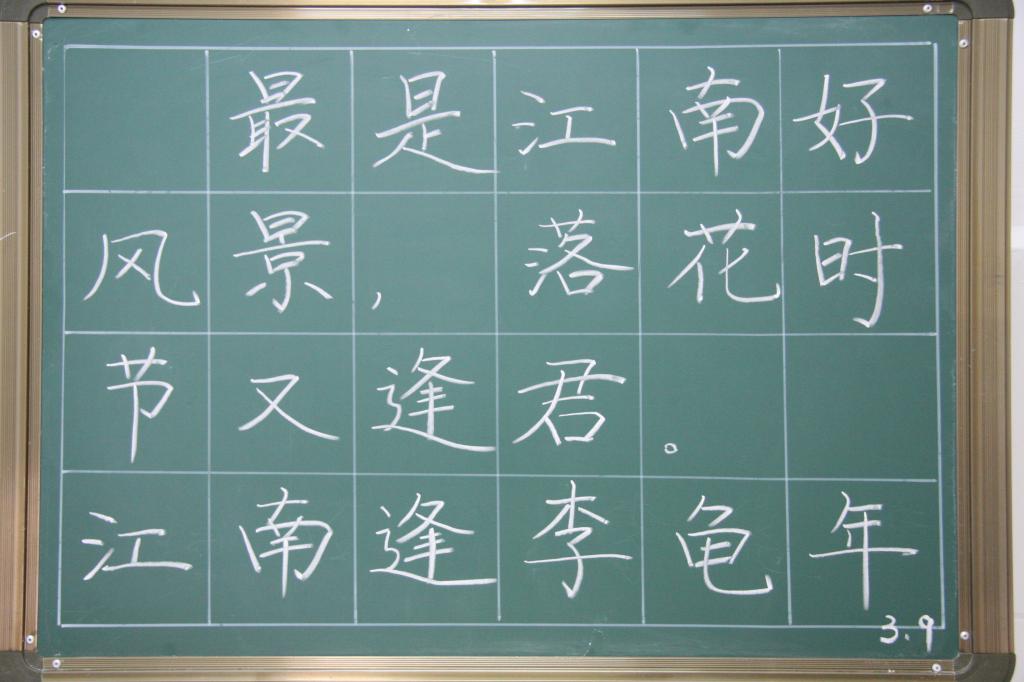 最是江南好
风景，落花时
节又逢君。
江南逢李龟年
3.9